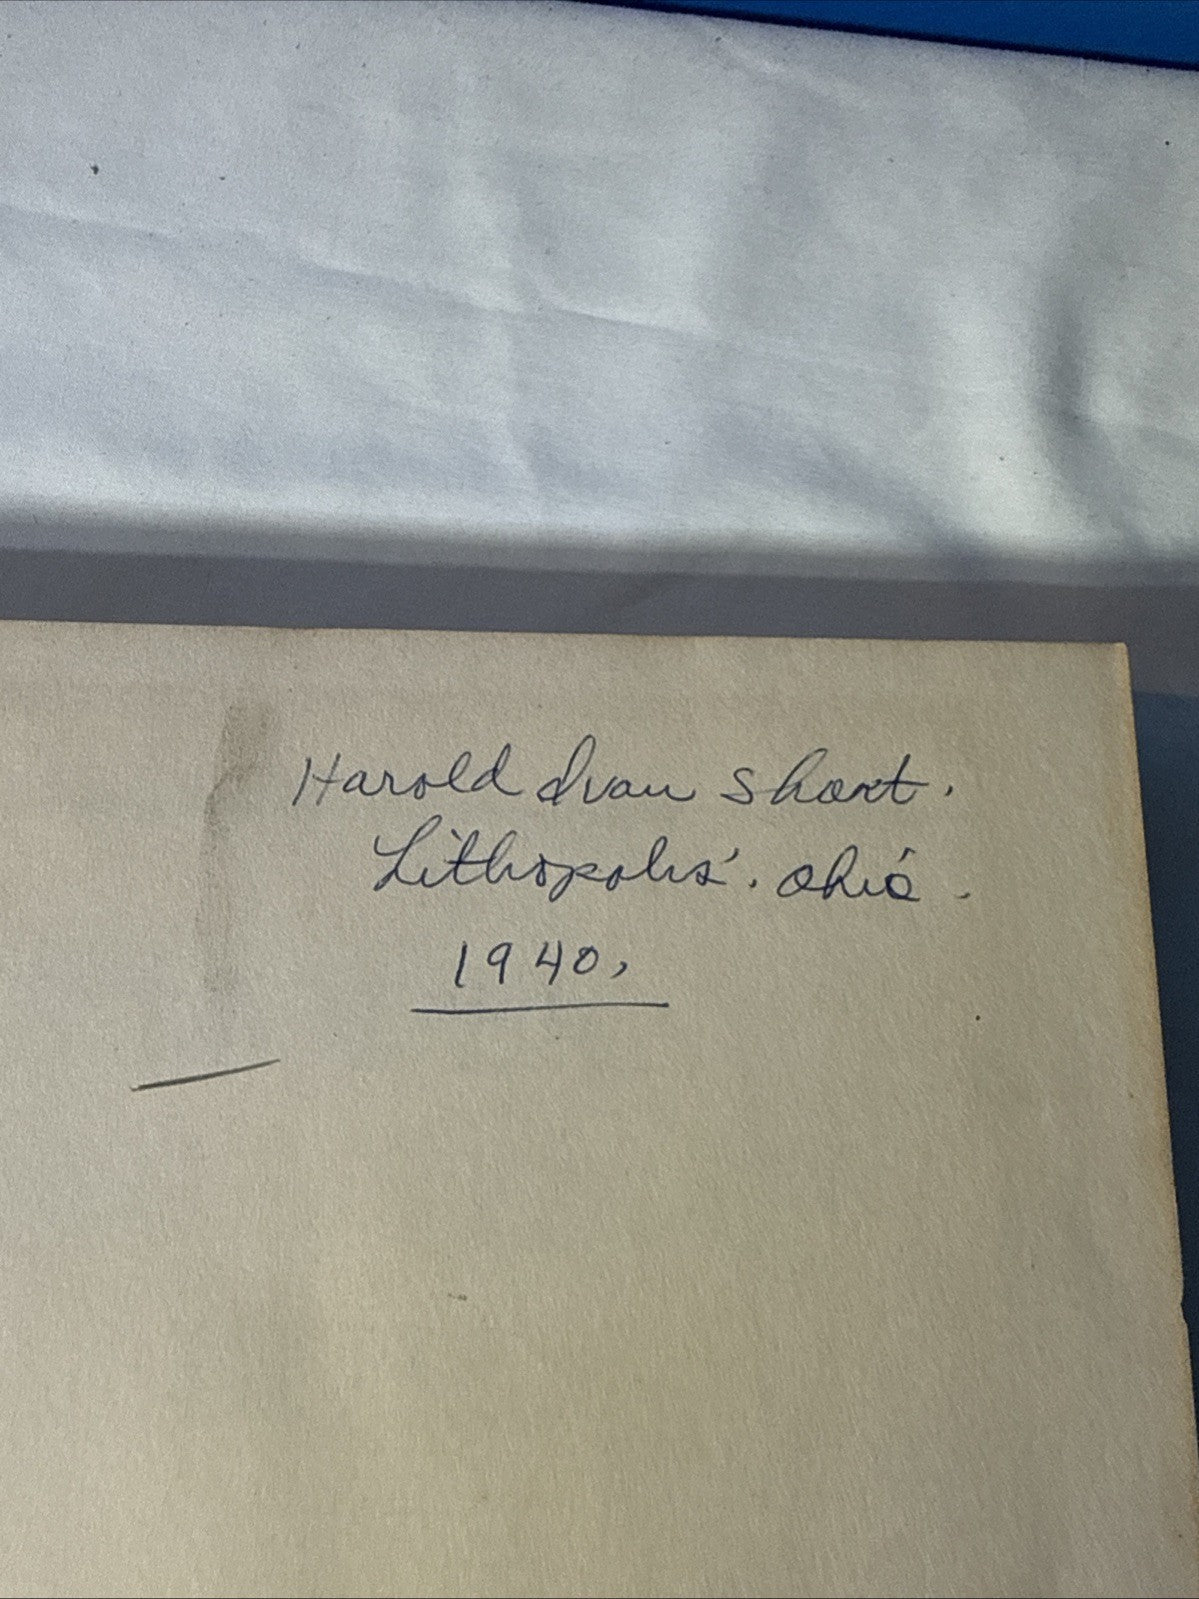 Harold Ivan Short.
Lithopolis. Ohio.
1940.